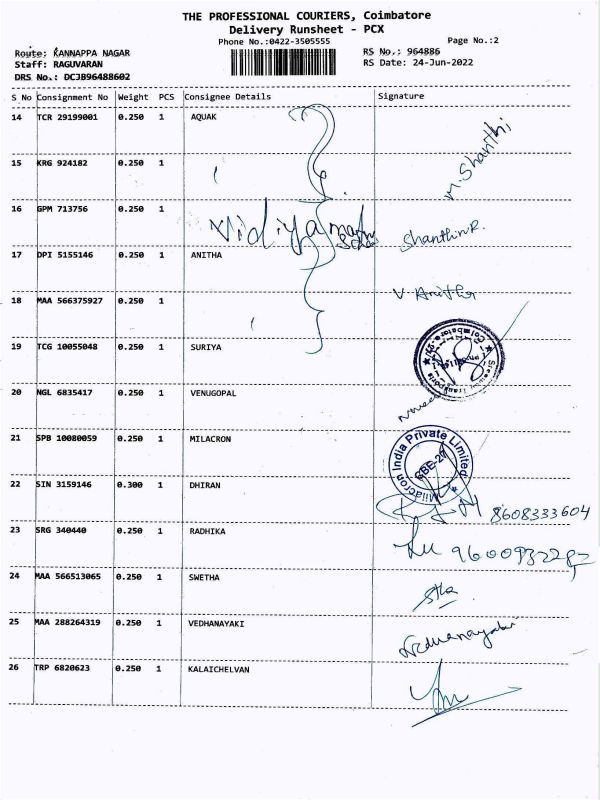 THE PROFESSIONAL COURIERS, Coimbatore
Delivery Runsheet - PCX
Phone No.:0422-3505555
Page No.:2
Route: KANNAPPA NAGAR
RS No.: 964886
Staff: RAGUVARAN
RS Date: 24-Jun-2022
DRS No.: DCJB96488602
S No Consignment No Weight PCS Consignee Details Signature
14 TCR 29199001 0.250 1 AQUAK
M. Shanthi
15 KRG 924182 0.250 1
16 GPM 713756 0.250 1
Vidiya
17 DPI 5155146 0.250 1 ANITHA
V Anitha
18 MAA 566375927 0.250 1
19 TCG 10055048 0.250 1 SURIYA
Coimbatore
20 NGL 6835417 0.250 1 VENUGOPAL
21 SPB 10080059 0.250 1 MILACRON
Milacron India Private Limited
CBE-21
22 SIN 3159146 0.300 1 DHIRAN
8608333604
23 SRG 340440 0.250 1 RADHIKA
24 MAA 566513065 0.250 1 SWETHA
25 MAA 288264319 0.250 1 VEDHANAYAKI
Vedhanayaki
26 TRP 6820623 0.250 1 KALAICHELVAN